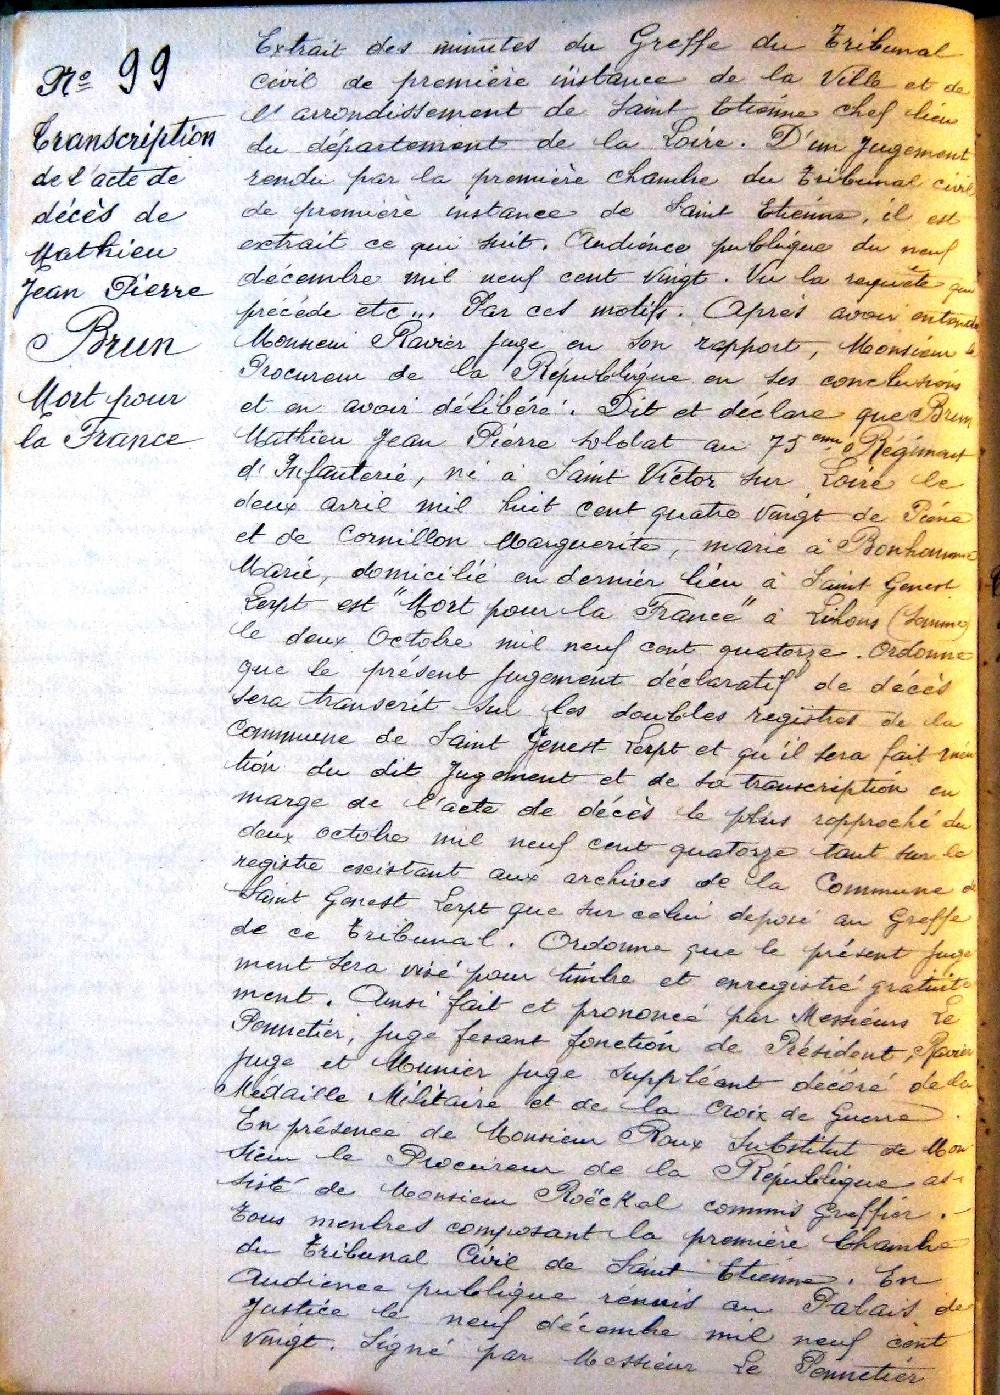 No 99
Transcription
de l'acte de
décès de
Mathieu
Jean Pierre
Brun
Mort pour
la France
Extrait des minutes du Greffe du Tribunal
civil de première instance de la Ville et de
l'arrondissement de Saint Etienne chef lieu
du département de la Loire. D'un jugement
rendu par la première chambre du Tribunal civil
de première instance de Saint Etienne, il est
extrait ce qui suit. Audience publique du neuf
décembre mil neuf cent vingt. Vu la requête qui
précède etc... Par ces motifs. Après avoir entendu
Monsieur Ravier juge en son rapport, Monsieur le
Procureur de la République en ses conclusions
et en avoir délibéré. Dit et déclare que Brun
Mathieu Jean Pierre soldat au 75eme Régiment
d'Infanterie, né à Saint Victor sur Loire le
deux avril mil huit cent quatre vingt de Pierre
et de Cornillon Marguerite, marié à Bonhomme
Marie, domicilié en dernier lieu à Saint Genest
Lerpt est "Mort pour la France" à Lihons (Somme)
le deux Octobre mil neuf cent quatorze. Ordonne
que le présent jugement déclaratif de décès
sera transcrit sur les doubles registres de la
Commune de Saint Genest Lerpt et qu'il sera fait men
tion du dit jugement et de sa transcription en
marge de l'acte de décès le plus rapproché du
deux octobre mil neuf cent quatorze tant sur le
registre existant aux archives de la Commune de
Saint Genest Lerpt que sur celui déposé au Greffe
de ce Tribunal. Ordonne que le présent juge
ment sera visé pour timbre et enregistré gratuite
ment. Ainsi fait et prononcé par Messieurs Le
Pennetier, juge fesant fonction de Président, Ravier
juge et Munier juge suppléant décoré de la
Médaille Militaire et de la Croix de Guerre.
En présence de Monsieur Roux Substitut de Mon
sieur le Procureur de la République as-
sisté de Monsieur Roëckel commis Greffier.
Tous menbres composant la première Chambre
du Tribunal Civil de Saint Etienne. En
Audience publique remis au Palais de
Justice le neuf décembre mil neuf cent
vingt. Signé par Messieur Le Pennetier